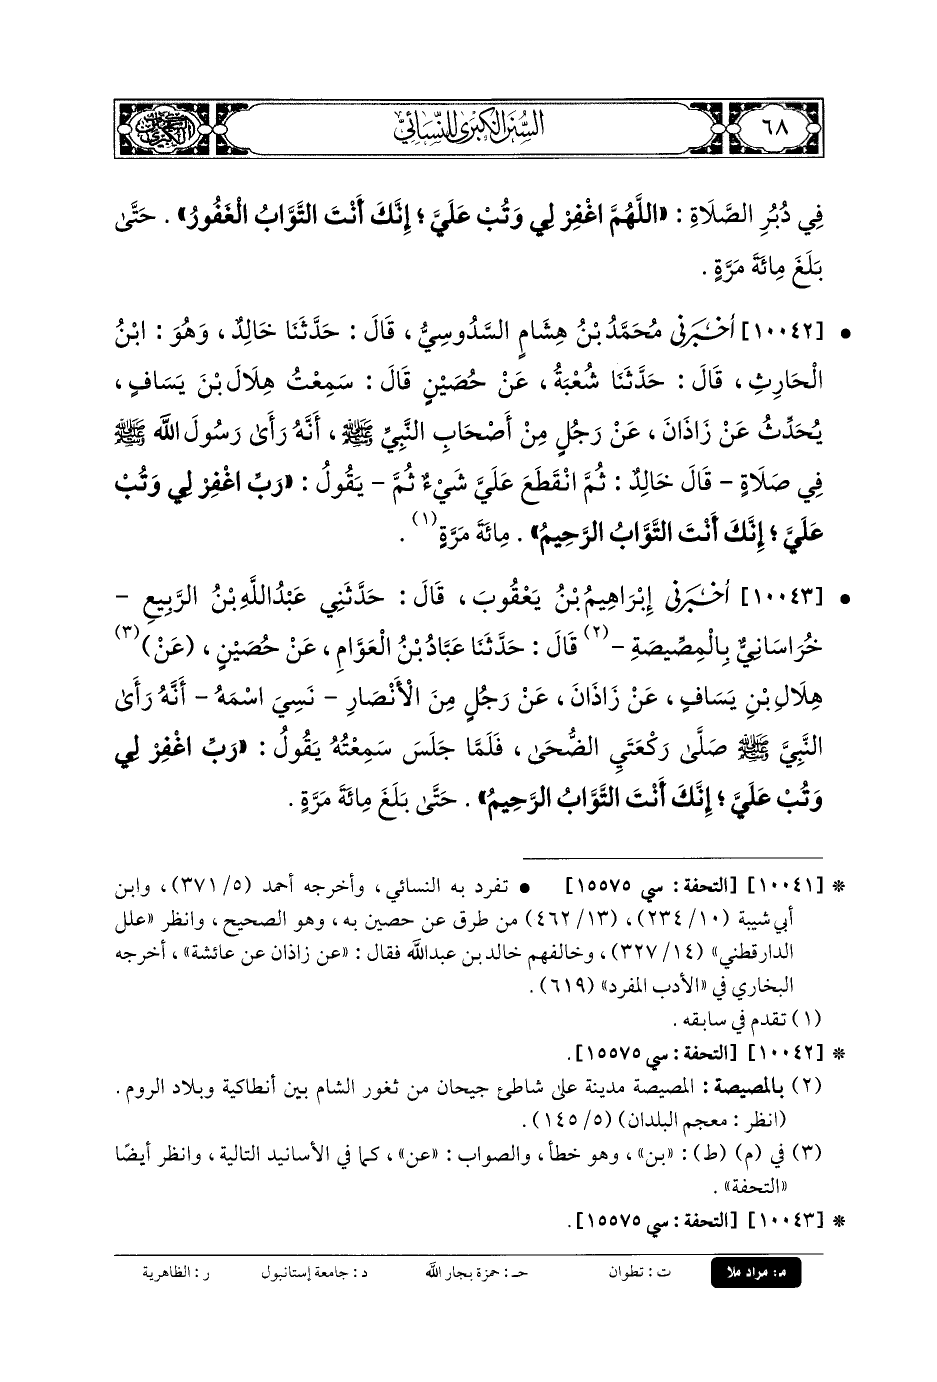 ٦٨
السنن الكبرى للنسائي
فِي دُبُرِ الصَّلَاةِ : «اللَّهُمَّ اغْفِرْ لِي وَتُبْ عَلَيَّ ؛ إِنَّكَ أَنْتَ التَّوَّابُ الْغَفُورُ» . حَتَّىٰ
بَلَغَ مِائَةَ مَرَّةٍ .
• [١٠٠٤٢] أخْبَرَنِي مُحَمَّدُ بْنُ هِشَامٍ السَّدُوسِيُّ ، قَالَ : حَدَّثَنَا خَالِدٌ ، وَهُوَ : ابْنُ
الْحَارِثِ ، قَالَ : حَدَّثَنَا شُعْبَةُ ، عَنْ حُصَيْنٍ قَالَ : سَمِعْتُ هِلَالَ بْنَ يَسَافٍ ،
يُحَدِّثُ عَنْ زَاذَانَ ، عَنْ رَجُلٍ مِنْ أَصْحَابِ النَّبِيِّ ﷺ ، أَنَّهُ رَأَىٰ رَسُولَ اللَّه ﷺ
فِي صَلَاةٍ – قَالَ خَالِدٌ : ثُمَّ انْقَطَعَ عَلَيَّ شَيْءٌ ثُمَّ – يَقُولُ : «رَبِّ اغْفِرْ لِي وَتُبْ
عَلَيَّ ؛ إِنَّكَ أَنْتَ التَّوَّابُ الرَّحِيمُ» . مِائَةَ مَرَّةٍ(١) .
• [١٠٠٤٣] أخْبَرَنِي إِبْرَاهِيمُ بْنُ يَعْقُوبَ ، قَالَ : حَدَّثَنِي عَبْدُاللَّهِ بْنُ الرَّبِيعِ –
خُرَاسَانِيٌّ بِالْمِصِّيصَةِ –(٢) قَالَ : حَدَّثَنَا عَبَّادُ بْنُ الْعَوَّامِ ، عَنْ حُصَيْنٍ ، (عَنْ)(٣)
هِلَالِ بْنِ يَسَافٍ ، عَنْ زَاذَانَ ، عَنْ رَجُلٍ مِنَ الْأَنْصَارِ – نَسِيَ اسْمَهُ – أَنَّهُ رَأَىٰ
النَّبِيَّ ﷺ صَلَّىٰ رَكْعَتَيِ الضُّحَىٰ ، فَلَمَّا جَلَسَ سَمِعْتُهُ يَقُولُ : «رَبِّ اغْفِرْ لِي
وَتُبْ عَلَيَّ ؛ إِنَّكَ أَنْتَ التَّوَّابُ الرَّحِيمُ» . حَتَّىٰ بَلَغَ مِائَةَ مَرَّةٍ .
* [١٠٠٤١] [التحفة : سي ١٥٥٧٥] • تفرد به النسائي ، وأخرجه أحمد (٥/ ٣٧١) ، وابن
أبي شيبة (١٠/ ٢٣٤) ، (١٣/ ٤٦٢) من طرق عن حصين به ، وهو الصحيح ، وانظر «علل
الدارقطني» (١٤/ ٣٢٧) ، وخالفهم خالد بن عبدالله فقال : «عن زاذان عن عائشة» ، أخرجه
البخاري في «الأدب المفرد» (٦١٩) .
(١) تقدم في سابقه .
* [١٠٠٤٢] [التحفة : سي ١٥٥٧٥] .
(٢) بالمصيصة : المصيصة مدينة على شاطئ جيحان من ثغور الشام بين أنطاكية وبلاد الروم .
(انظر : معجم البلدان) (٥/ ١٤٥) .
(٣) في (م) (ط) : «بن» ، وهو خطأ ، والصواب : «عن» ، كما في الأسانيد التالية ، وانظر أيضًا
«التحفة» .
* [١٠٠٤٣] [التحفة : سي ١٥٥٧٥] .
م: مراد ملا ت : تطوان حـ : حمزة بجار الله د : جامعة إستانبول ر : الظاهرية